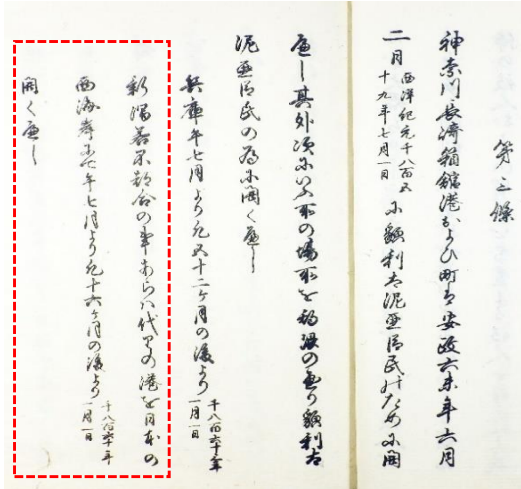 第三條
神奈川長崎箱館港および町は安政六未年六月
二月 西洋紀元千八百五
十九年七月一日 に貌利太泥亜臣民のために開
べし其外次にいふ所の場所を約限の通り貌利太
泥亜臣民の為に開くべし
兵庫午七月より凡五十二ヶ月の後より 千八百六十三年
一月一日
新潟若不都合の事あらハ代りの港を日本の
西海岸ニ 午七月より凡十六ヶ月の後より 千八百六十年
一月一日
開くべし